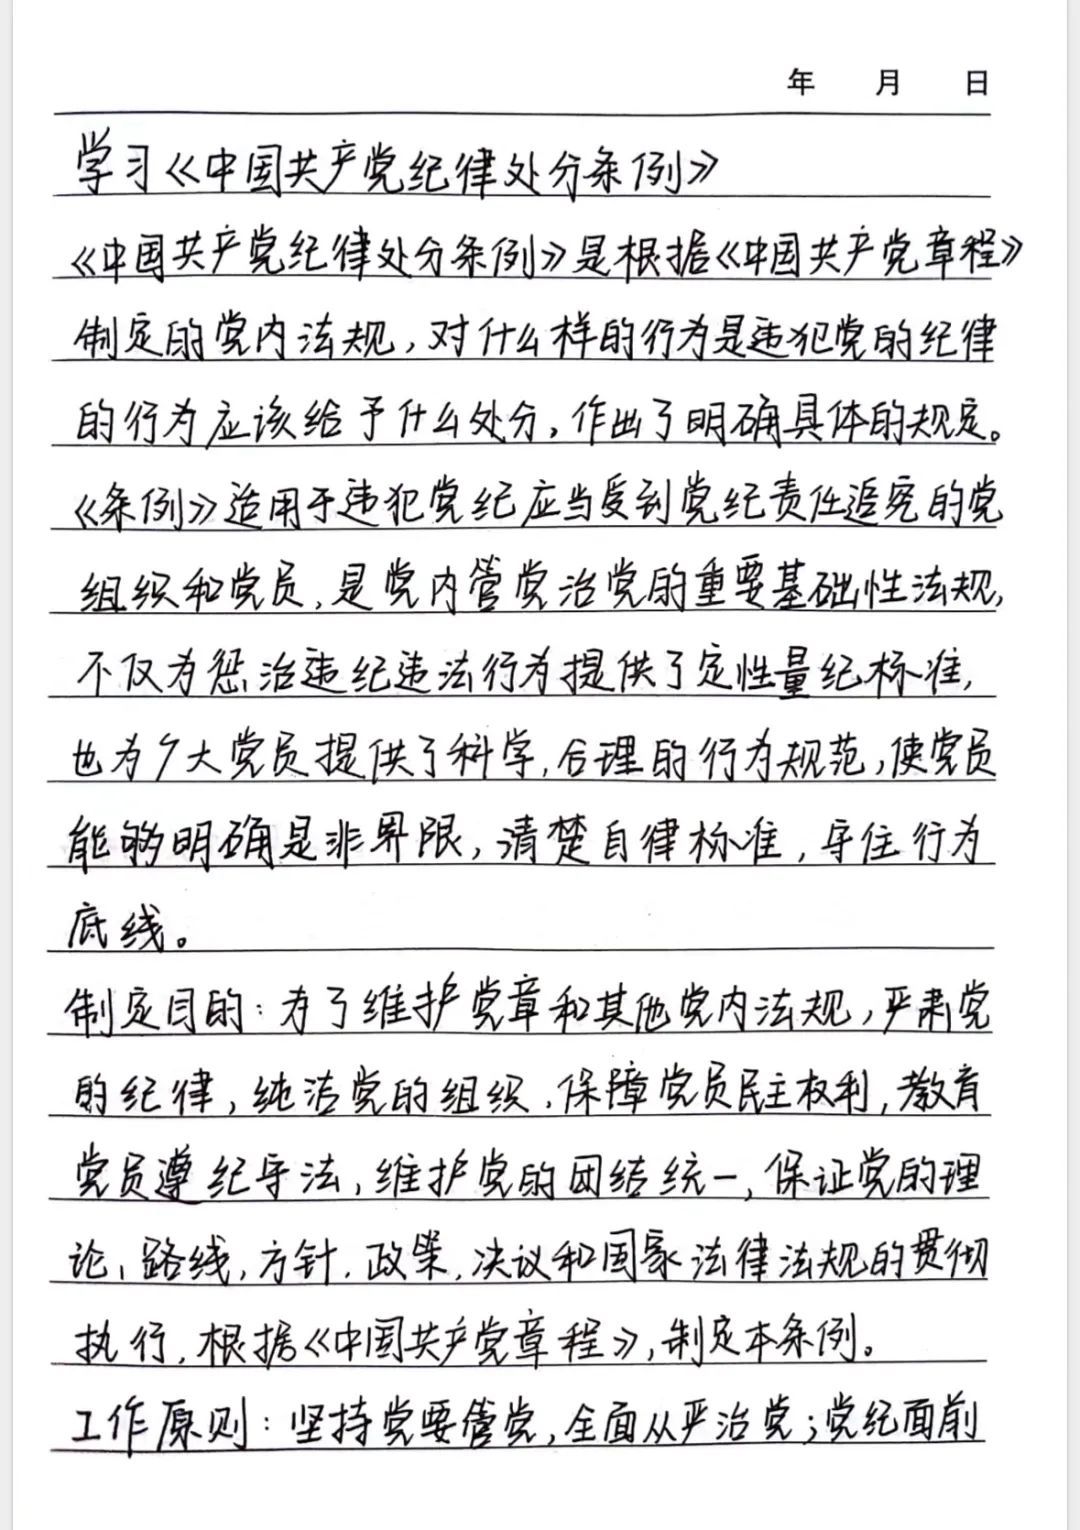 年 月 日
学习《中国共产党纪律处分条例》
《中国共产党纪律处分条例》是根据《中国共产党章程》
制定的党内法规,对什么样的行为是违犯党的纪律
的行为应该给予什么处分,作出了明确具体的规定。
《条例》适用于违犯党纪应当受到党纪责任追究的党
组织和党员,是党内管党治党的重要基础性法规,
不仅为惩治违纪违法行为提供了定性量纪标准,
也为广大党员提供了科学、合理的行为规范,使党员
能够明确是非界限,清楚自律标准,守住行为
底线。
制定目的:为了维护党章和其他党内法规,严肃党
的纪律,纯洁党的组织,保障党员民主权利,教育
党员遵纪守法,维护党的团结统一,保证党的理
论、路线、方针、政策、决议和国家法律法规的贯彻
执行,根据《中国共产党章程》,制定本条例。
工作原则:坚持党要管党,全面从严治党;党纪面前